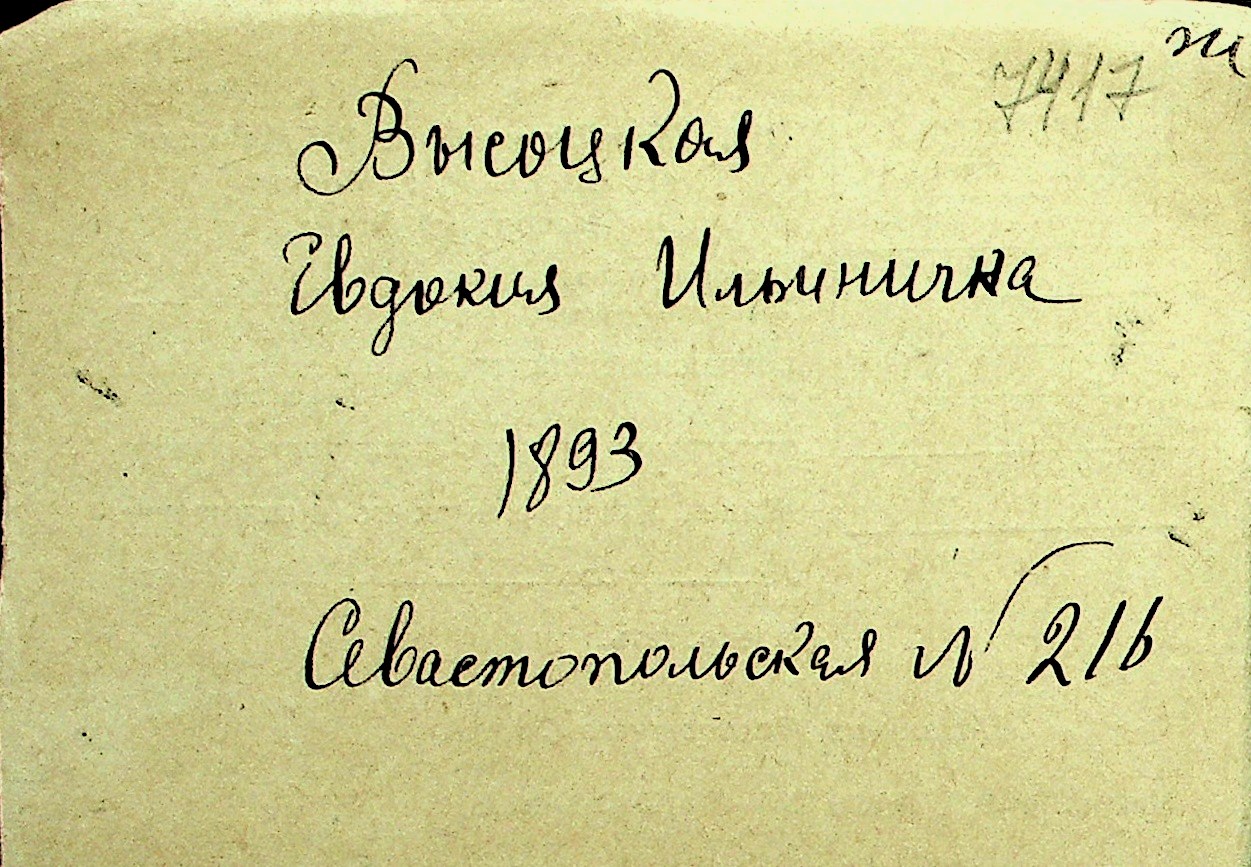 ж
7417
Высоцкая
Евдокия Ильиничка
1893
Севастопольская № 216